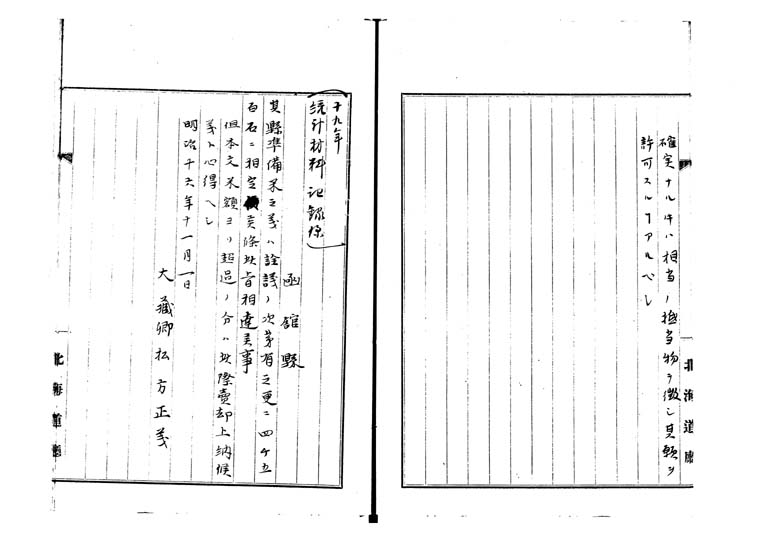 確実ナルキハ相当ノ擔当物ヲ徴シ其願ヲ
許可スルヿアルベシ
北海道廳
十九年
統計材料記録係
函館縣
其縣準備米之義ハ詮議ノ次第有之更ニ四千五
百石ニ相定候条此旨相達候事
但本文米額ヨリ超過ノ分ハ此際賣却上納候
義ト心得ベシ
明治十六年十一月一日
大藏卿松方正義
北海道廳